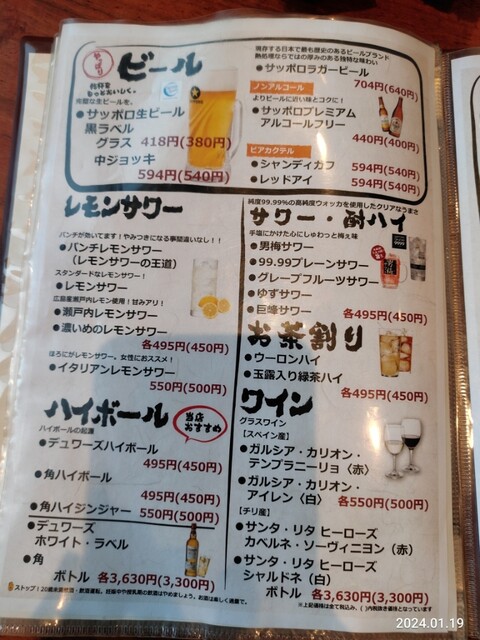 ビール
サッポロ生ビール
黒ラベル
グラス 418円(380円)
中ジョッキ
594円(540円)
現存する日本で最も歴史のあるビールブランド
熱処理ならではの厚みのある独特な味わい
●サッポロラガービール
704円(640円)
ノンアルコール
よりビールに近い味とコクに!
●サッポロプレミアム
アルコールフリー
440円(400円)
ビアカクテル
●シャンディガフ 594円(540円)
●レッドアイ 594円(540円)
レモンサワー
パンチが効いてます!やみつきになる事間違いなし!!
●パンチレモンサワー
(レモンサワーの王道)
スタンダードなレモンサワー!
●レモンサワー
広島産瀬戸内レモン使用!甘みアリ!
●瀬戸内レモンサワー
●濃いめのレモンサワー
各495円(450円)
ほろにがレモンサワー、女性におススメ!
●イタリアンレモンサワー
550円(500円)
ハイボール
当店
おすすめ
ハイボールの起源
●デュワーズハイボール
495円(450円)
●角ハイボール
495円(450円)
●角ハイジンジャー 550円(500円)
●デュワーズ
ホワイト・ラベル
●角
ボトル 各3,630円(3,300円)
純度99.99%の高純度ウォッカを使用したクリアなうまさ
サワー・酎ハイ
手塩にかけた心にしゅわっと梅ぇ味
●男梅サワー
●99.99プレーンサワー
●グレープフルーツサワー
●ゆずサワー
●巨峰サワー
各495円(450円)
お茶割り
●ウーロンハイ
●玉露入り緑茶ハイ
各495円(450円)
ワイン
グラスワイン
【スペイン産】
●ガルシア・カリオン・
テンプラニーリョ〈赤〉
●ガルシア・カリオン・
アイレン〈白〉 各550円(500円)
【チリ産】
●サンタ・リタ ヒーローズ
カベルネ・ソーヴィニヨン(赤)
●サンタ・リタ ヒーローズ
シャルドネ(白)
ボトル 各3,630円(3,300円)
※上記価格は全て税込み、( )内税抜き価格となっています
2024.01.19